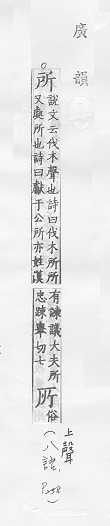 廣韻
所
說文云伐木聲也詩曰伐木所所
又處所也詩曰獻于公所亦姓漢
有諫議大夫所
忠踈舉切七
所
俗
上聲
(八語,